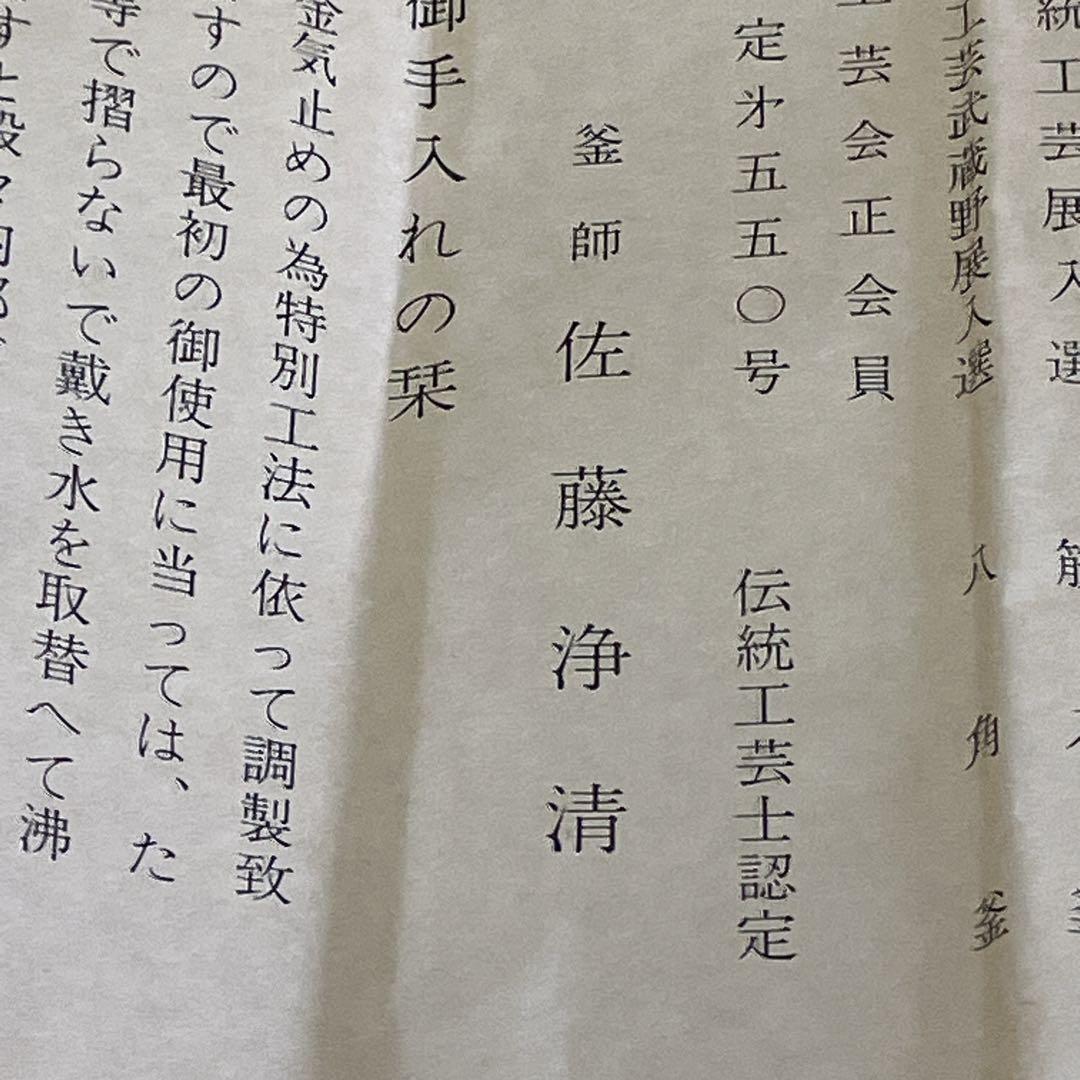 統工芸展入選 筋
工芸武蔵野展入選 八角釜
芸会正会員
定㐧五五〇号 伝統工芸士認定
釜師 佐藤浄清
御手入れの栞
金気止めの為特別工法に依って調製致
すので最初の御使用に当っては、た
等で摺らないで戴き水を取替へて沸